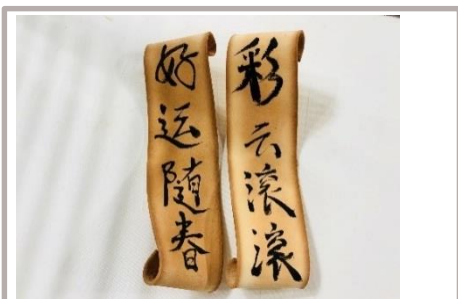 彩云滚滚
好运随春